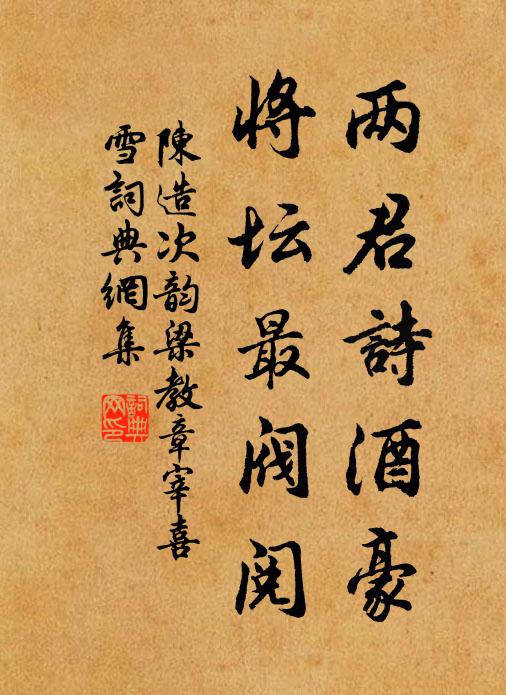 两君詩酒豪
将坛最阀阅
陳造次韵梁教章宰喜
雪詞典網集
詞典网印